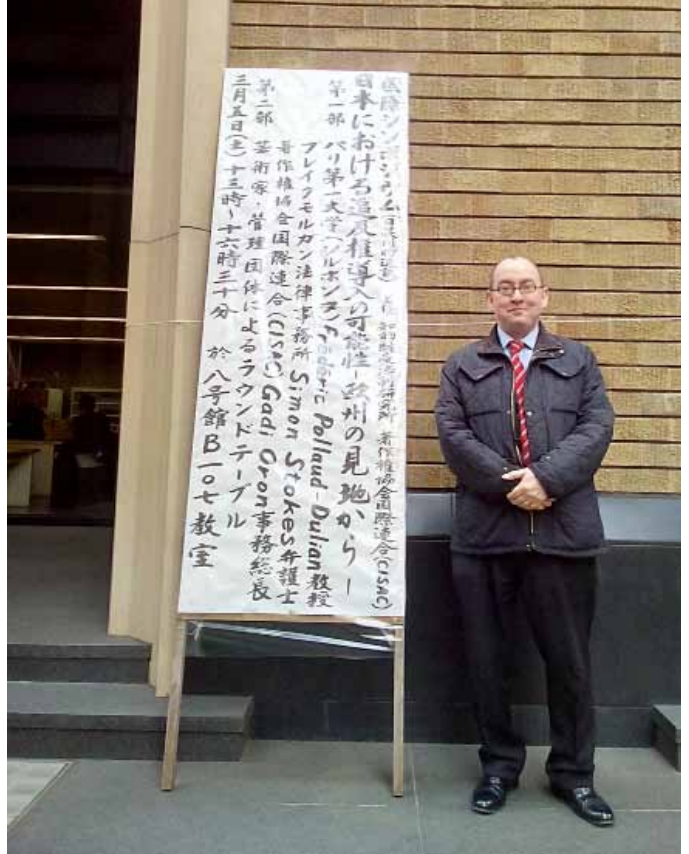 国際シンポジウム 知的財産法制研究所 著作権協会国際連合(CISAC)
日本における追及権導入の可能性ー欧州の見地からー
第一部 パリ第一大学(ソルボンヌ)Frédéric Pollaud-Dulian教授
ブレイクモルガン法律事務所 Simon Stokes弁護士
著作権協会国際連合(CISAC) Gadi Oron事務総長
第二部 芸術家・管理団体によるラウンドテーブル
三月五日(土)十三時~十六時三十分 於 八号館B一〇七教室